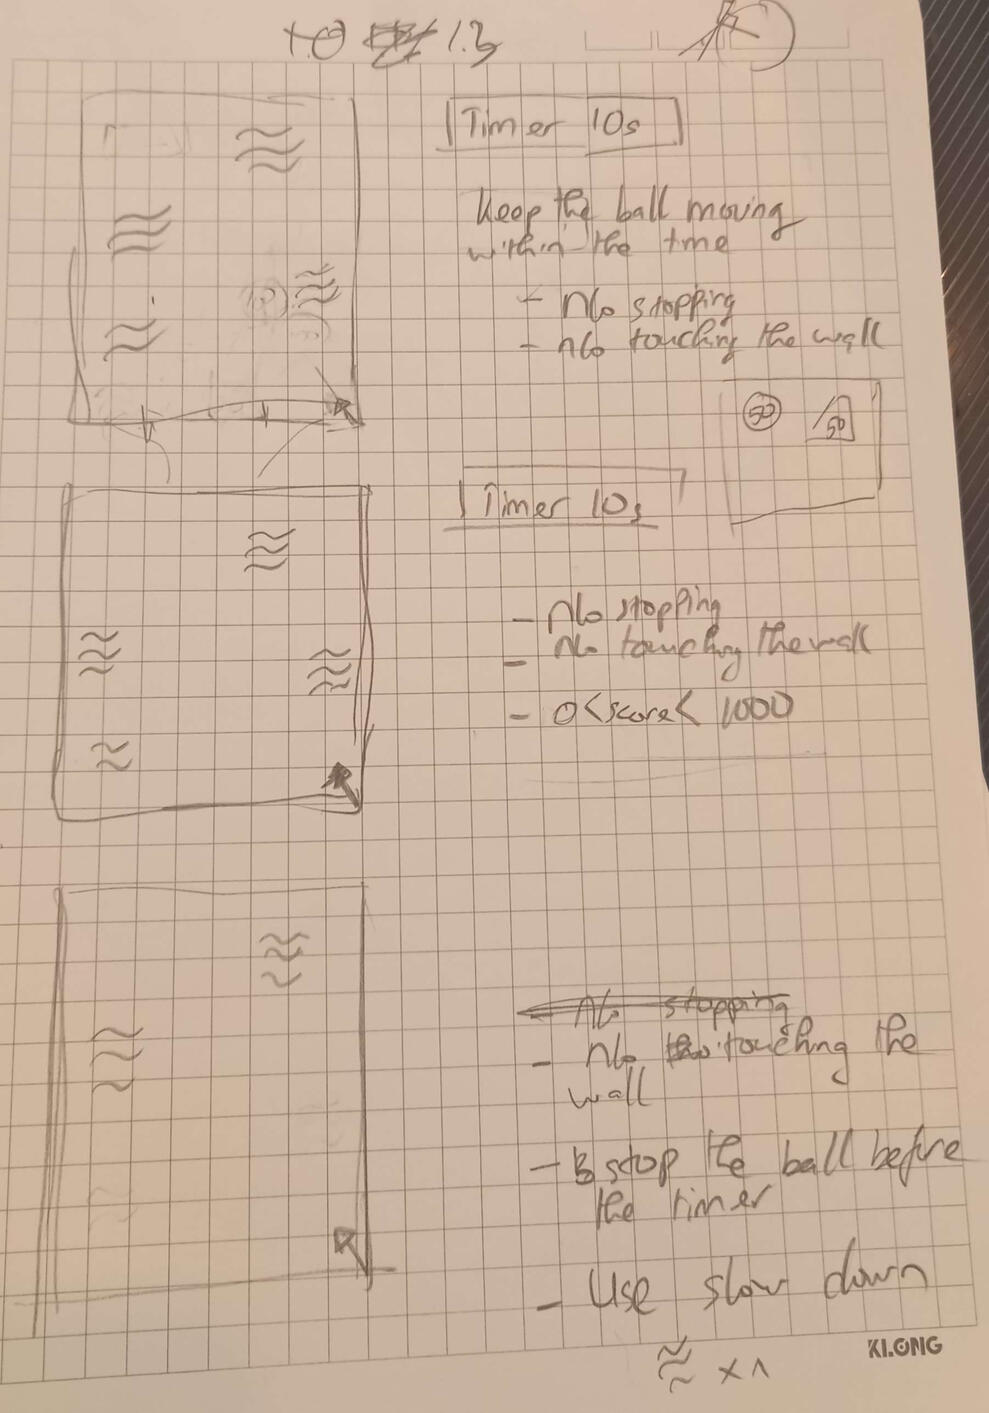 1.3
Timer 10s
Keep the ball moving
within the time
- No stopping
- No touching the wall
50 50
Timer 10s
- No stopping
- No touching the wall
- 0<score< 1000
- No stopping
- No touching the
wall
- stop the ball before
the timer
- Use slow down
KLONG